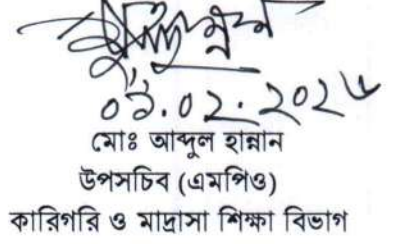 মোঃ আব্দুল হান্নান
উপসচিব (এমপিও)
কারিগরি ও মাদ্রাসা শিক্ষা বিভাগ